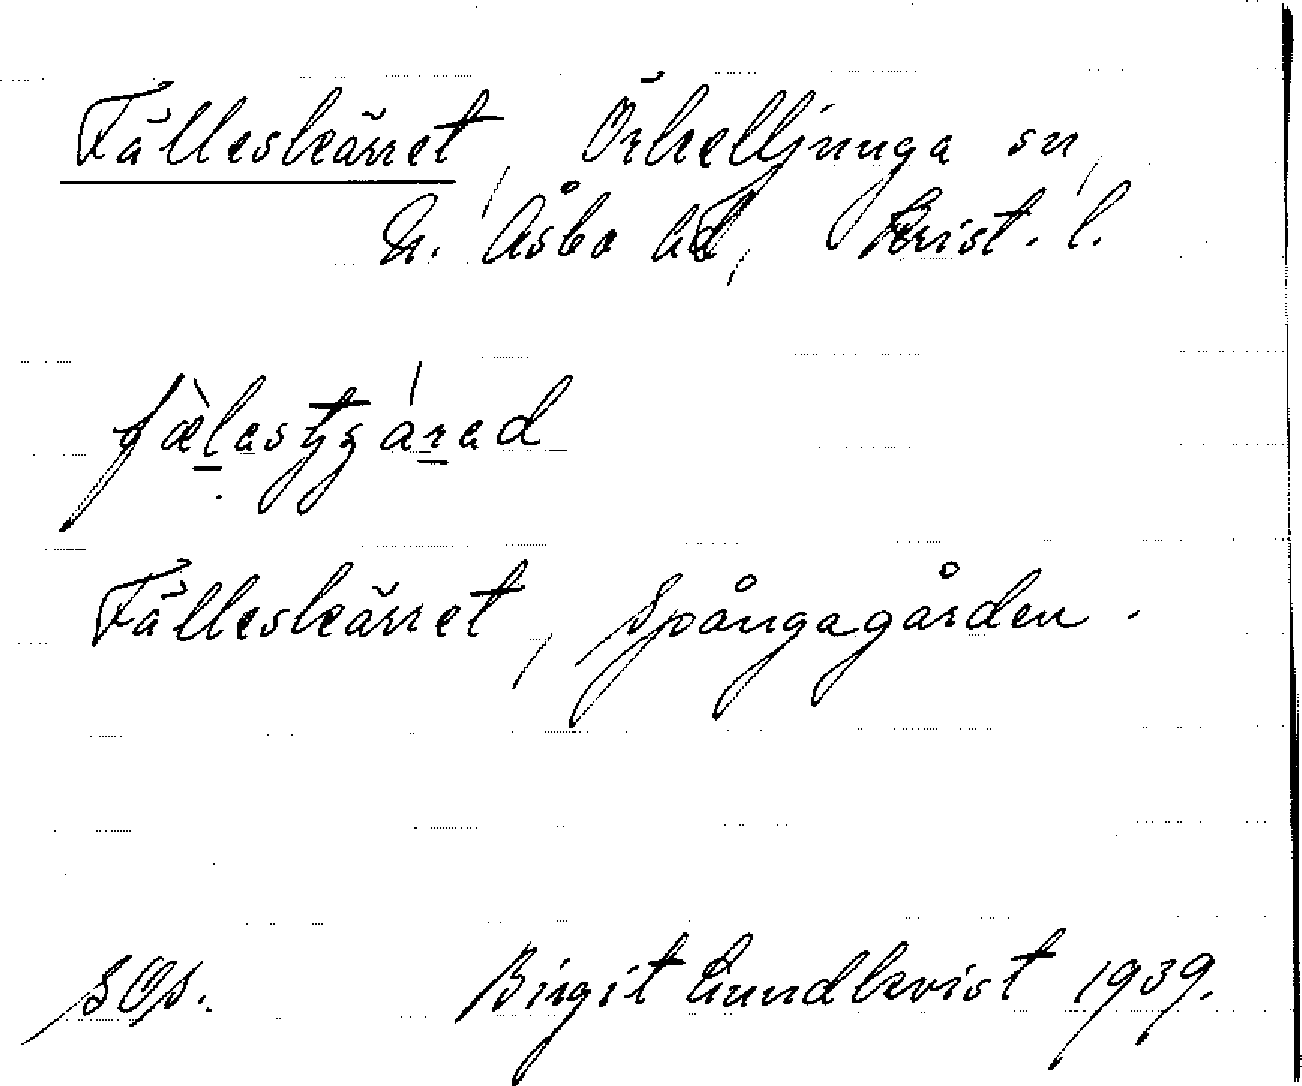 Fälleskärret, Örkelljunga sn,
N. Åsbo hd, Krist. l.
Fälleskärret, Spångagården.
SOs. Birgit Lundkvist 1939.